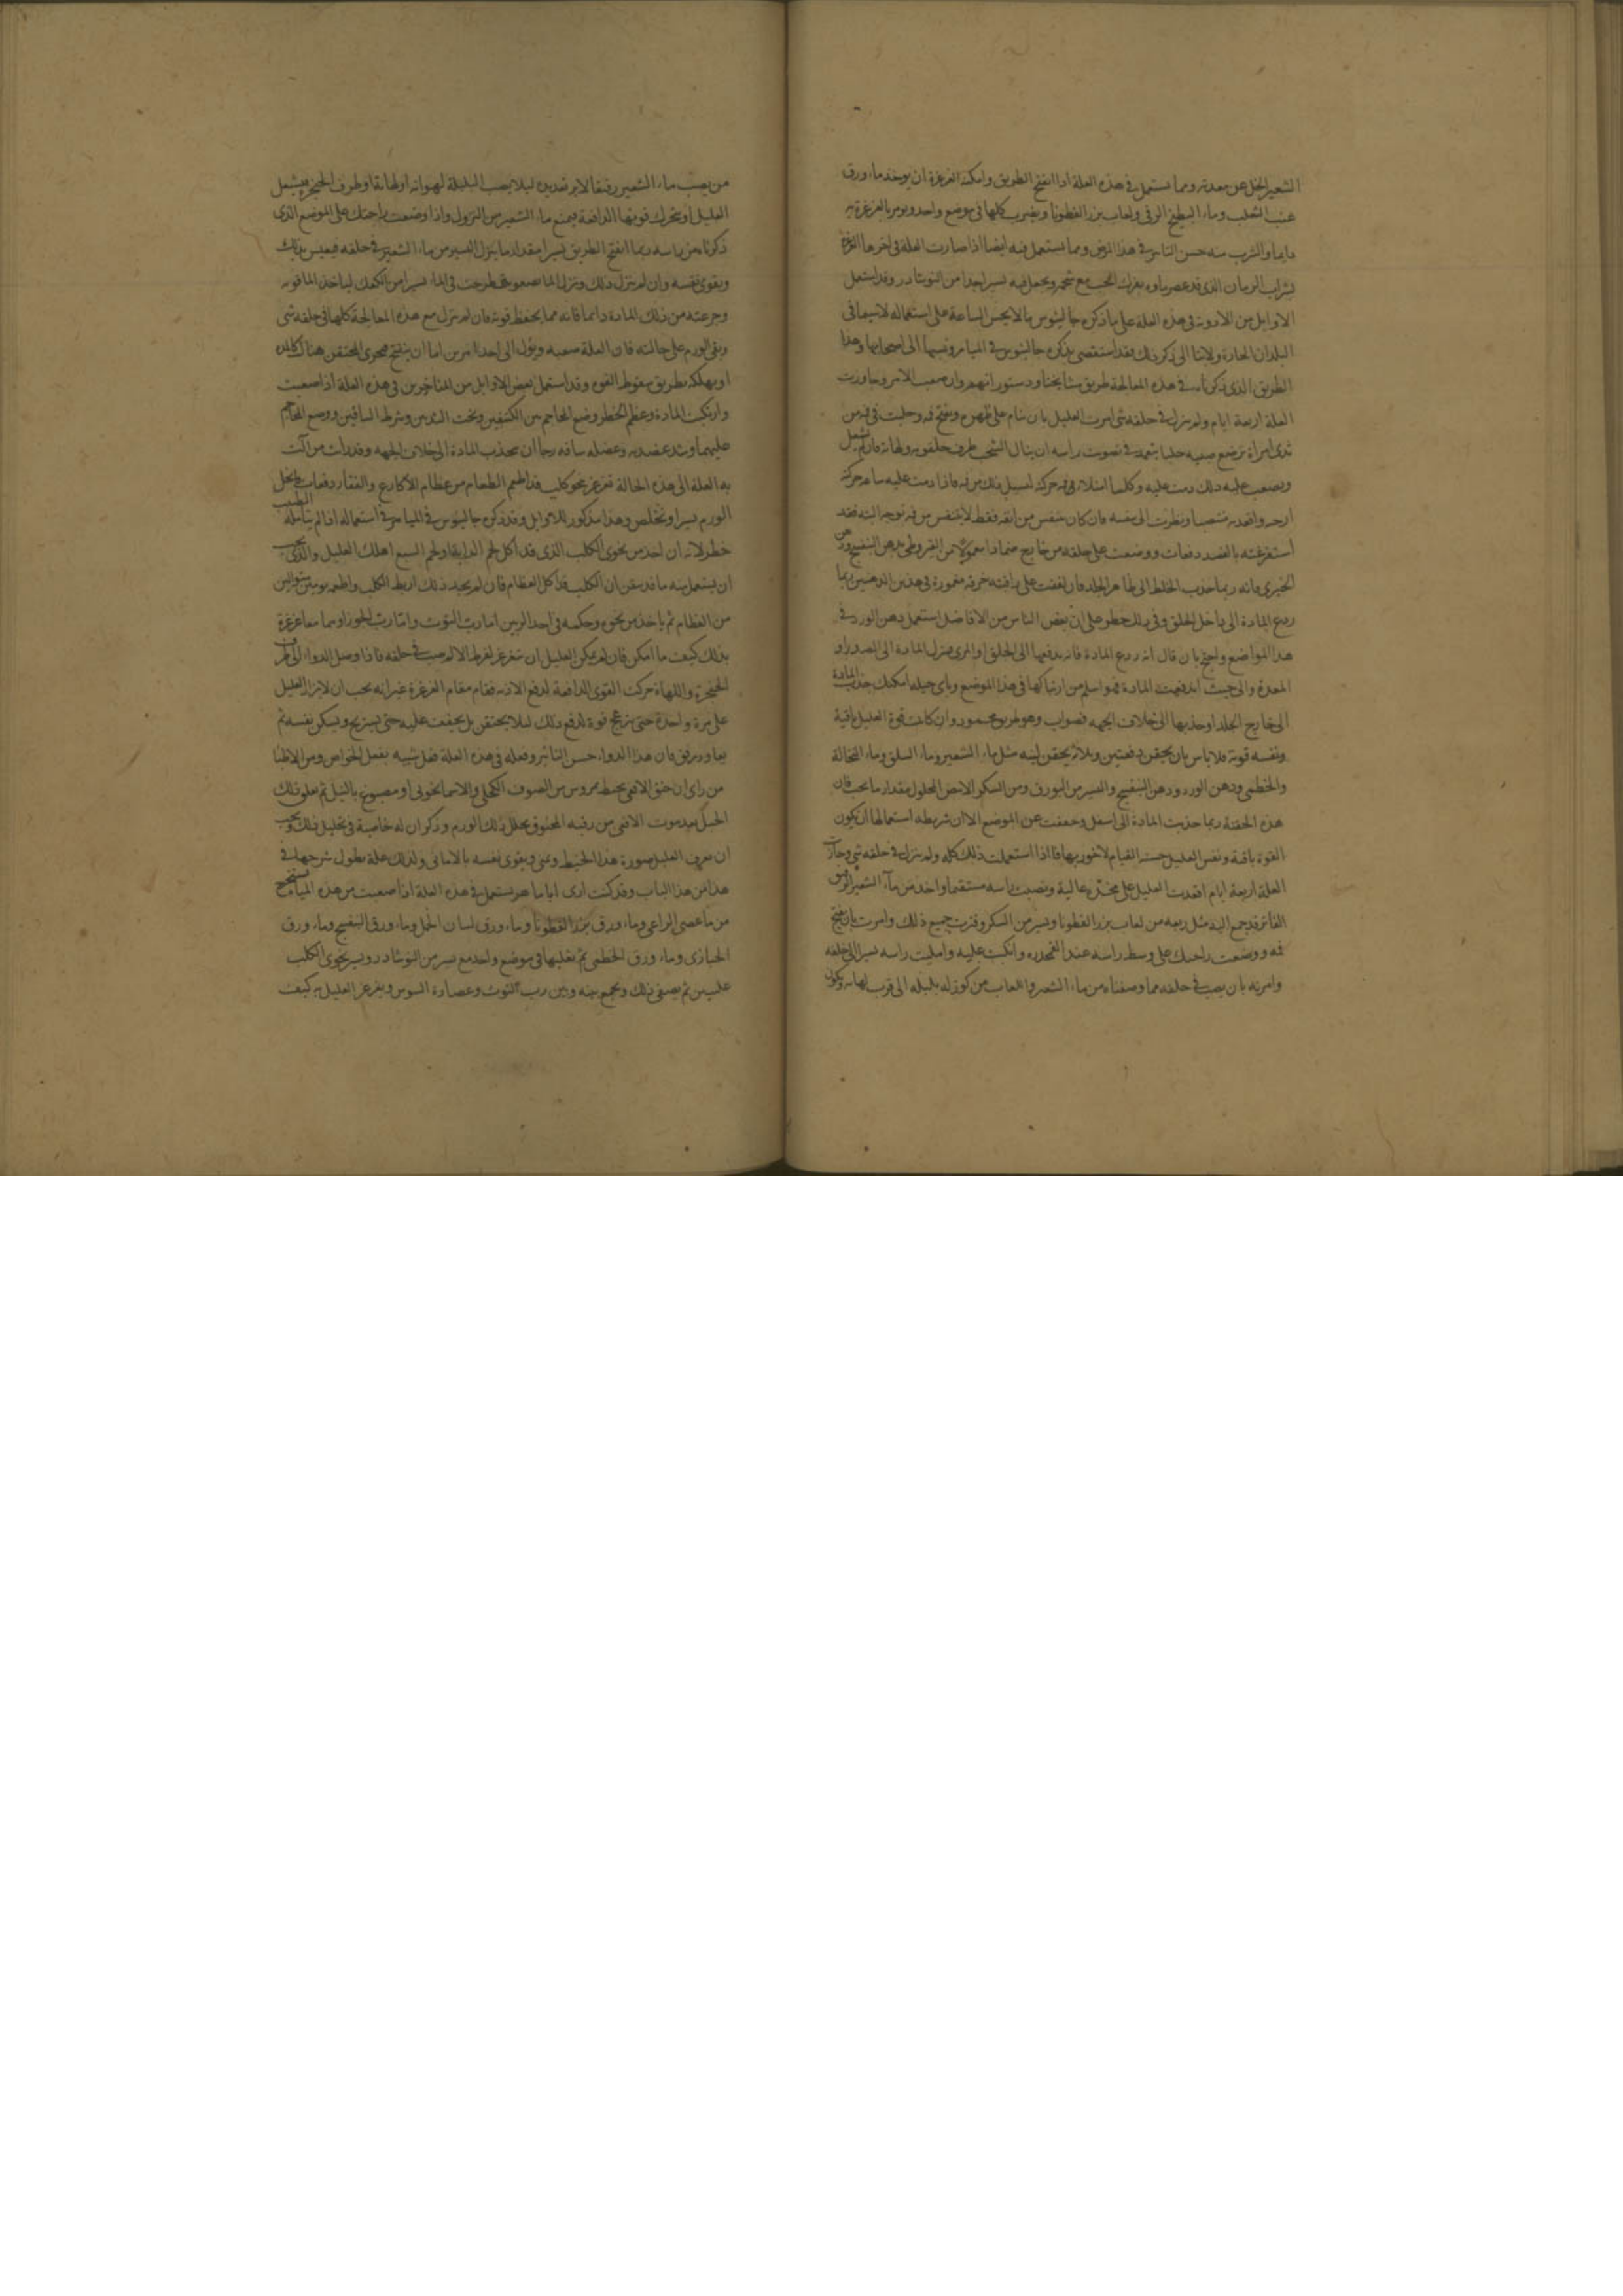 الشعير الخل عن معدته ومما يستعمل في هذه العلة اذا انفتح الطريق وامكنه الغرغرة ان يوخذ ماء ورق
عنب الثعلب وماء البطيخ الرقى ولعاب بزر القطونا ويضرب كلها في موضع واحد ويومر بالغرغرة به
دايما والشرب منه حسن التاثير في هذا المرض ومما يستعمل فيه ايضا اذا صارت العلة في اخرها الغرغرة
بشراب الرمان الذي قد عصر ماوه بعرك الحب مع شحمه ويجعل فيه يسير جدا من النوشادر وقد استعمل
الاوايل من الادوية في هذه العلة على ما ذكره جالينوس ما لا يحسن الساعة على استعماله لاسيما في
البلدان الحارة ولا بنا الى ذكر ذلك فقد استقصى بذكره جالينوس في الميامر ونسبها الى اصحابها وهذا
الطريق الذي ذكرناه في هذه المعالجة طريق مشايخنا ودستوراتهم وان صعب الامر وجاوزت
العلة اربعة ايام ولم ينزل في حلقه شي امرت العليل بان ينام على ظهره ويفتح فمه وحلبت في فيه من
ثدى امراة ترضع صبيه حلبا يتعمد في تصويب راسه ان ينال الشخب طرف حلقومه ولهاته فان لم يسهل
ويصعب عليه ذلك دمت عليه وكلما امتلا في فمه حركته ليسيل ذلك من فيه فاذا دمت عليه ساعه حركته
ارحه واقعد به منتصبا ونظرت الى نفسه فان كان يتنفس من انفه فقط لا يتنفس من فيه بوجه البته فقد
استفرغته بالفصد دفعات ووضعت على حلقه من خارج ضمادا معمولا من القيروطى بدهن البنفسج ودهن
الخيرى فانه ربما جذب الخلط الى ظاهر الجلد فان لففت على رقبته خرقة مغمورة في هذين الدهنين ربما
ردع المادة الى داخل الحلق وفي ذلك خطر على ان بعض الناس من الافاضل استعمل دهن الورد في
هذا المواضع واحتج بان قال انه ردع المادة فانه يدفعها الى الحلق او المرى فينزل المادة الى الصدر او
المعدة والى حيث اندفعت المادة فهو اسلم من ارتباكها في هذا الموضع وباى حيله امكنك جذب المادة
الى خارج الجلد او جذبها الى خلاف الجهه فصواب وهو طريق محمود وان كانت قوة العليل باقية
ونفسه قوية فلا باس بان يحقن دفعتين وثلاثة بحقن لينه مثل ماء الشعير وماء السلق وماء النخالة
والخطمى ودهن الورد ودهن البنفسج واليسير من البورق ومن السكر الابيض المحلول مقدار ما يجب فان
هذه الحقنة ربما جذبت المادة الى اسفل وخففت عن الموضع الا ان شريطه استعمالها ان يكون
القوة باقية ونفس العليل حسنه القيام لا خور بها فاذا استعملت ذلك كله ولم ينزل في حلقه شي وجازت
العلة اربعة ايام اقعدت العليل على مخدة عالية ونصبت راسه مستقيما واخذ من ماء الشعير الرقيق
الفاتر قد جمع اليه مثل ربعه من لعاب بزر القطونا ويسير من السكر وفترت جميع ذلك وامرت بان يفتح
فمه ووضعت راحتك على وسط راسه عند القمحدوه وانكبت عليه واملت راسه يسيرا الى خلفه
وامرته بان يصب في حلقه مما وصفناه من ماء الشعير والعاب من كوز له بلبله الى قرب لهاته ويكون
من يصب ماء الشعير رفيقا لا يرتعد يده ليلا يصيب البلبلة لهواته او لهاته او طرف الحنجرة فيسعل
العليل او يتحرك قوتها الدافعة فيمنع ماء الشعير من النزول واذا وضعت راحتك على الموضع الذي
ذكرناه من راسه ربما انفتح الطريق يسيرا مقدار ما ينزل اليسير من ماء الشعير في حلقه فيعيش بذلك
ويقوى نفسه وان لم ينزل ذلك ونزل الماء بصعوبة طرحت في الماء يسيرا من الكعك لياخذ الماء قوته
وجرعته من ذلك الماء دايما فانه مما يحفظ قوته فان لم ينزل مع هذه المعالجة كلها في حلقه شي
وبقى الورم على حالته فان العلة صعبه ويؤل الى احد امرين اما ان ينفتح مجرى المختنق هناك
او يهلكه بطريق سقوط القوه وقد استعمل بعض الاوايل من المتاخرين في هذه العلة اذا صعبت
وارتبكت المادة وعظم الخطر وضع المحاجم بين الكتفين وتحت الثديين وشرط الساقين ووضع المحاجم
عليهما وشد عضديه وعضله ساقه رجا ان يجذب المادة الى خلاف الجهه وقد رات من الت
به العلة الى هذه الحالة تغرغر بخرو كلب قد اطعم الطعام من عظام الاكارع والفقار دفعات فتحلل
الورم يسيرا وتخلص وهذا مذكور للاوايل وقد ذكره جالينوس في الميامر وفي استعماله اذا لم يتامله الطبيب
خطر لانه ان اخذ من خرو الكلب الذي قد اكل لحم الدابة او لحم السبع اهلك العليل والذي يجب
ان يستعمل منه ما قد تيقن ان الكلب قد اكل العظام فان لم يجد ذلك اربط الكلب واطعمه يومين متواليين
من العظام ثم ياخذ من خروه وحكمه في احد الربين اما رب التوت واما رب الجوز او هما معا غرغره
بذلك كيف ما امكن فان لم يمكن العليل ان يتغرغر لفرط الالم صب في حلقه فاذا وصل الدواء الى طرف
الحنجرة واللهاة حركت القوى الدافعة لدفع الاذيه فقام مقام الغرغرة غير انه يجب ان لا يزاد العليل
على مرة واحدة حتى ينزعج قوة لدفع ذلك ليلا يختنق بل يخفف عليه حتى يستريح ويسكن نفسه ثم
يعاود برفق فان هذا الدواء حسن التاثير وفعله في هذه العلة فعل شبيه بفعل الخواص ومن الاطبا
من راى ان خنق الافعى بخيط مبروم من الصوف الكحلى والاسمانجونى او مصبوغ بالنيل ثم يعلق ذلك
الحبل بعد موت الافعى من رقبه المخنوق يحلل ذلك الورم وذكر ان له خاصية في تحليل ذلك ويجب
ان يعرف العليل صورة هذا الخيط ويمنى ويقوى نفسه بالامانى ولذلك علة يطول شرحها في
هذا من هذا الباب وقد كنت ارى اياما هو يستعمل في هذه العلة اذا صعبت من هذه المياه يستخرج
من ماء عصى الراعى وماء ورق بزر القطونا وماء ورق لسان الحمل وماء ورق البنفسج وماء ورق
الخبازى وماء ورق الخطمى ثم يغليها في موضع واحد مع يسير من النوشادر ويسير خرو الكلب
غليتين ثم يصفى ذلك ويجمع بينه وبين رب التوت وعصارة السوس ويغرغر العليل به كيف